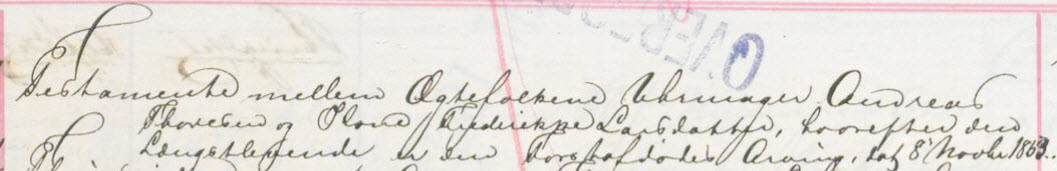 OVERF
Testamente mellem Ægtefolkene Uhrmager Andreas
Thoresen og Hone Frederikke Larsdatter, hvorefter den
Længstlevende er den Førstafdødes Arving, dat 8 Novbr 1863.